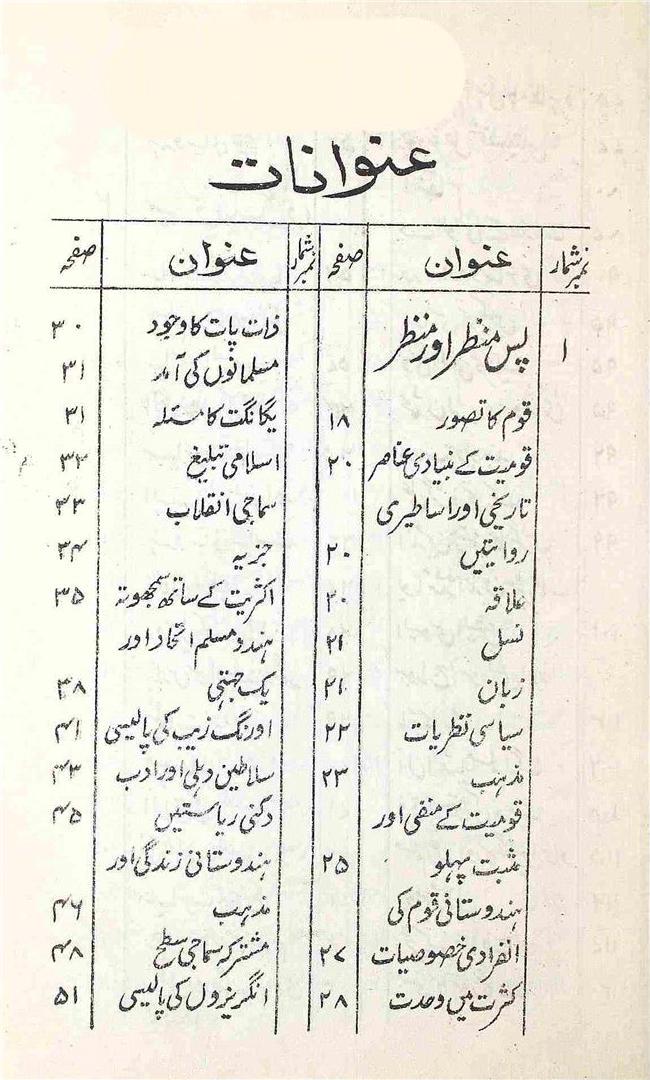 عنوانات
نمبر شمار عنوان صفحہ
۱ پس منظر اور منظر
قوم کا تصور ۱۸
قومیت کے بنیادی عناصر ۲۰
تاریخی اور اساطیری
روایتیں ۲۰
علاقہ ۲۰
نسل ۲۱
زبان ۲۱
سیاسی نظریات ۲۲
مذہب ۲۳
قومیت کے منفی اور
مثبت پہلو ۲۵
ہندوستانی قوم کی
انفرادی خصوصیات ۲۷
کثرت میں وحدت ۲۸
نمبر شمار عنوان صفحہ
ذات پات کا وجود ۳۰
مسلمانوں کی آمد ۳۱
یگانگت کا مسئلہ ۳۱
اسلامی تبلیغ ۳۲
سماجی انقلاب ۳۳
جزیہ ۳۴
اکثریت کے ساتھ سمجھوتہ ۳۵
ہندو مسلم اتحاد اور
یک جہتی ۳۸
اورنگ زیب کی پالیسی ۴۱
سلاطین دہلی اور ادب ۴۳
دکنی ریاستیں ۴۵
ہندوستانی زندگی اور
مذہب ۴۶
مشترکہ سماجی سطح ۴۸
انگریزوں کی پالیسی ۵۱